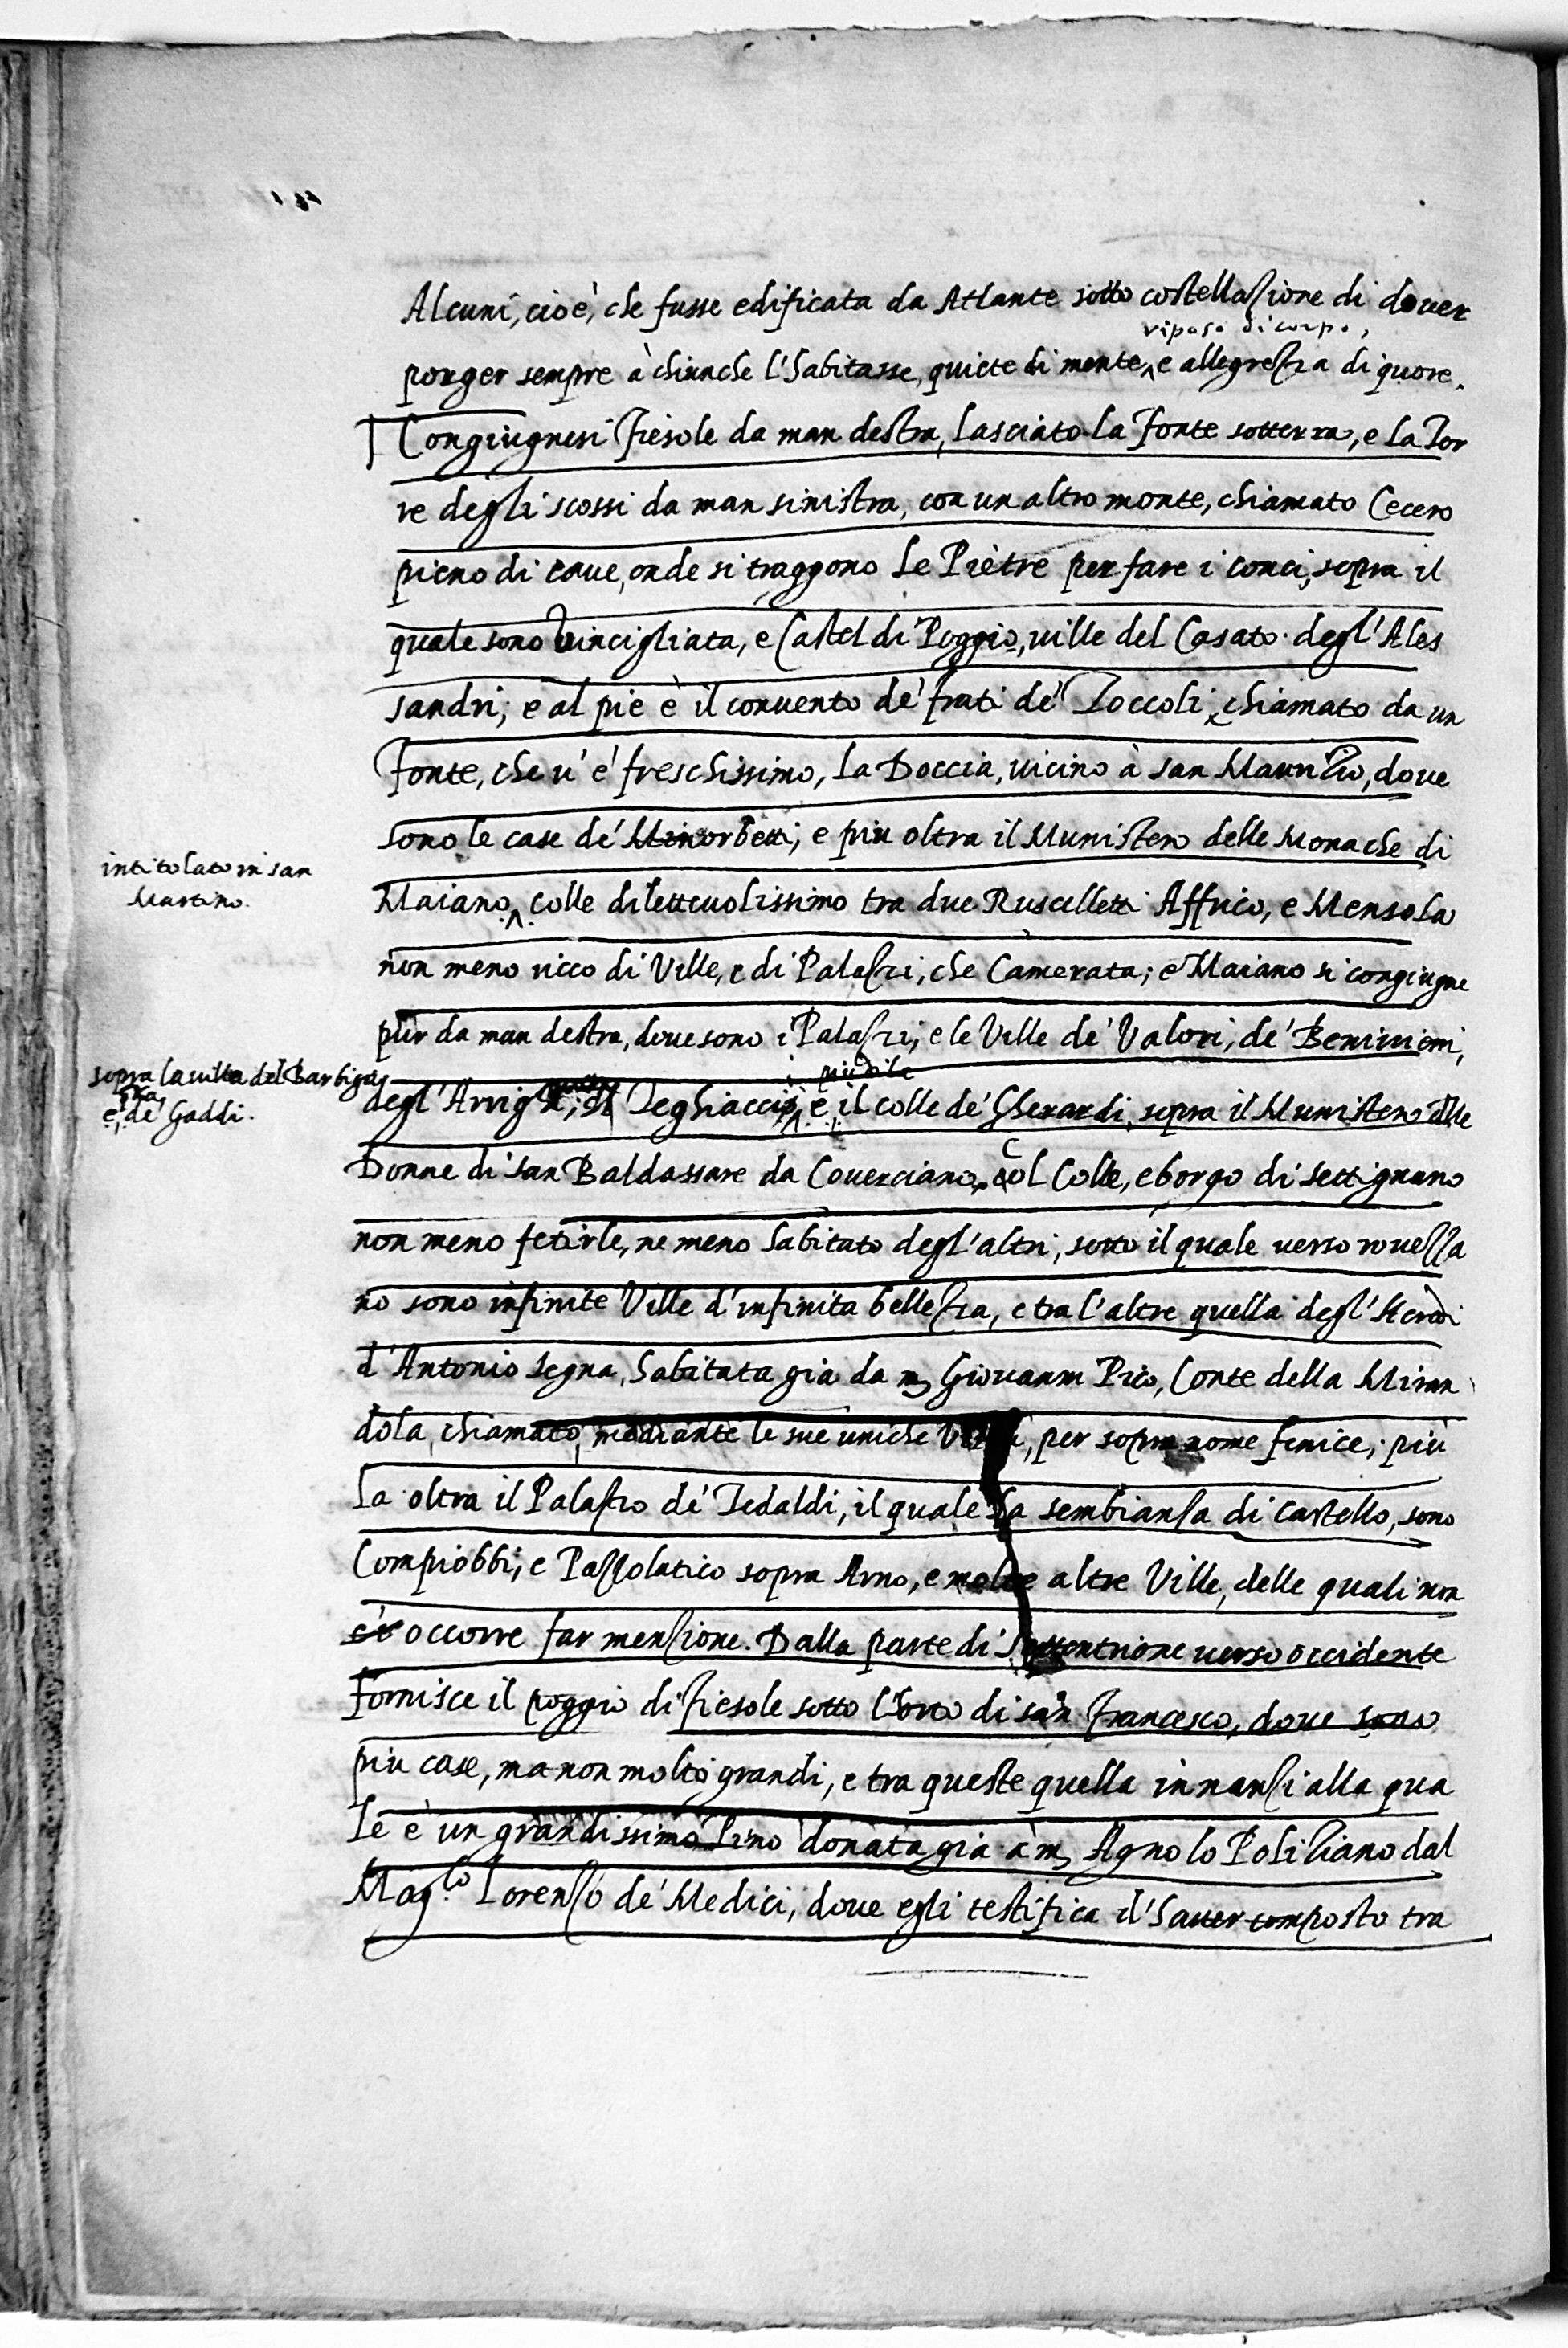 Alcuni, cioè, che fusse edificata da Atlante sotto costellazione di dover
riposo di corpo,
porger sempre à chiunche l'habitasse, quiete di mente, e allegrezza di quore.
Congiugnesi Fiesole da man destra, lasciato la Fonte sotterra, e la Tor
re degli scossi da man sinistra, con un altro monte, chiamato Cecero
pieno di caue, onde si traggono le Piètre per fare i conci, sopra il
quale sono Vincigliata, e Castel di Poggio, uille del Casato degl' Ales
sandri; e al piè è il conuento de' frati de' Zoccoli, chiamato da un
Fonte, che u' è freschissimo, la Doccia, uicino à san Maurizio, doue
sono le case de' Minorbetti; e piu oltra il Munistero delle Monache di
intitolato in san
Martino.
Maiano, colle diletteuolissimo tra due Ruscelletti Affrico, e Mensola
non meno ricco di Ville, e di Palazzi, che Camerata; e Maiano si congiugne
pur da man destra, doue sono i Palazzi, e le Ville de' Valori, de' Beniuieni,
sopra la uilla del Barbigia
e, de' Gaddi.
degl' Arrighi, Teghiacci, e il colle de' Gherardi, sopra il Munistero delle
Donne di san Baldassare da Couerciano, col Colle, e borgo di settignano
non meno fetirle, ne meno habitato degl' altri, sotto il quale uerso rouezza
no sono infinite Ville d' infinita bellezza, e tra l'altre quella degl' Heredi
d' Antonio segna, habitata già da m Giouanni Pico, Conte della Miran
dola, chiamato, mediante le sue uniche per sopra nome fenice; più
la oltra il Palazzo de' Tedaldi, il quale ha sembianza di Castello, sono
Compiobbi, e Pazzolatico sopra Arno, e molte altre Ville, delle quali non
ci occorre far menzione. Dalla parte di Settentrione uerso occidente
fornisce il poggio di Fiesole sotto l'horto di san Francesco, doue sono
piu case, ma non molto grandi, e tra queste quella innanzi alla qua
le è un grandissimo Pino donata già à m Agnolo Poliziano dal
Mag.co Lorenzo de' Medici, doue egli testifica d' hauer composto tra